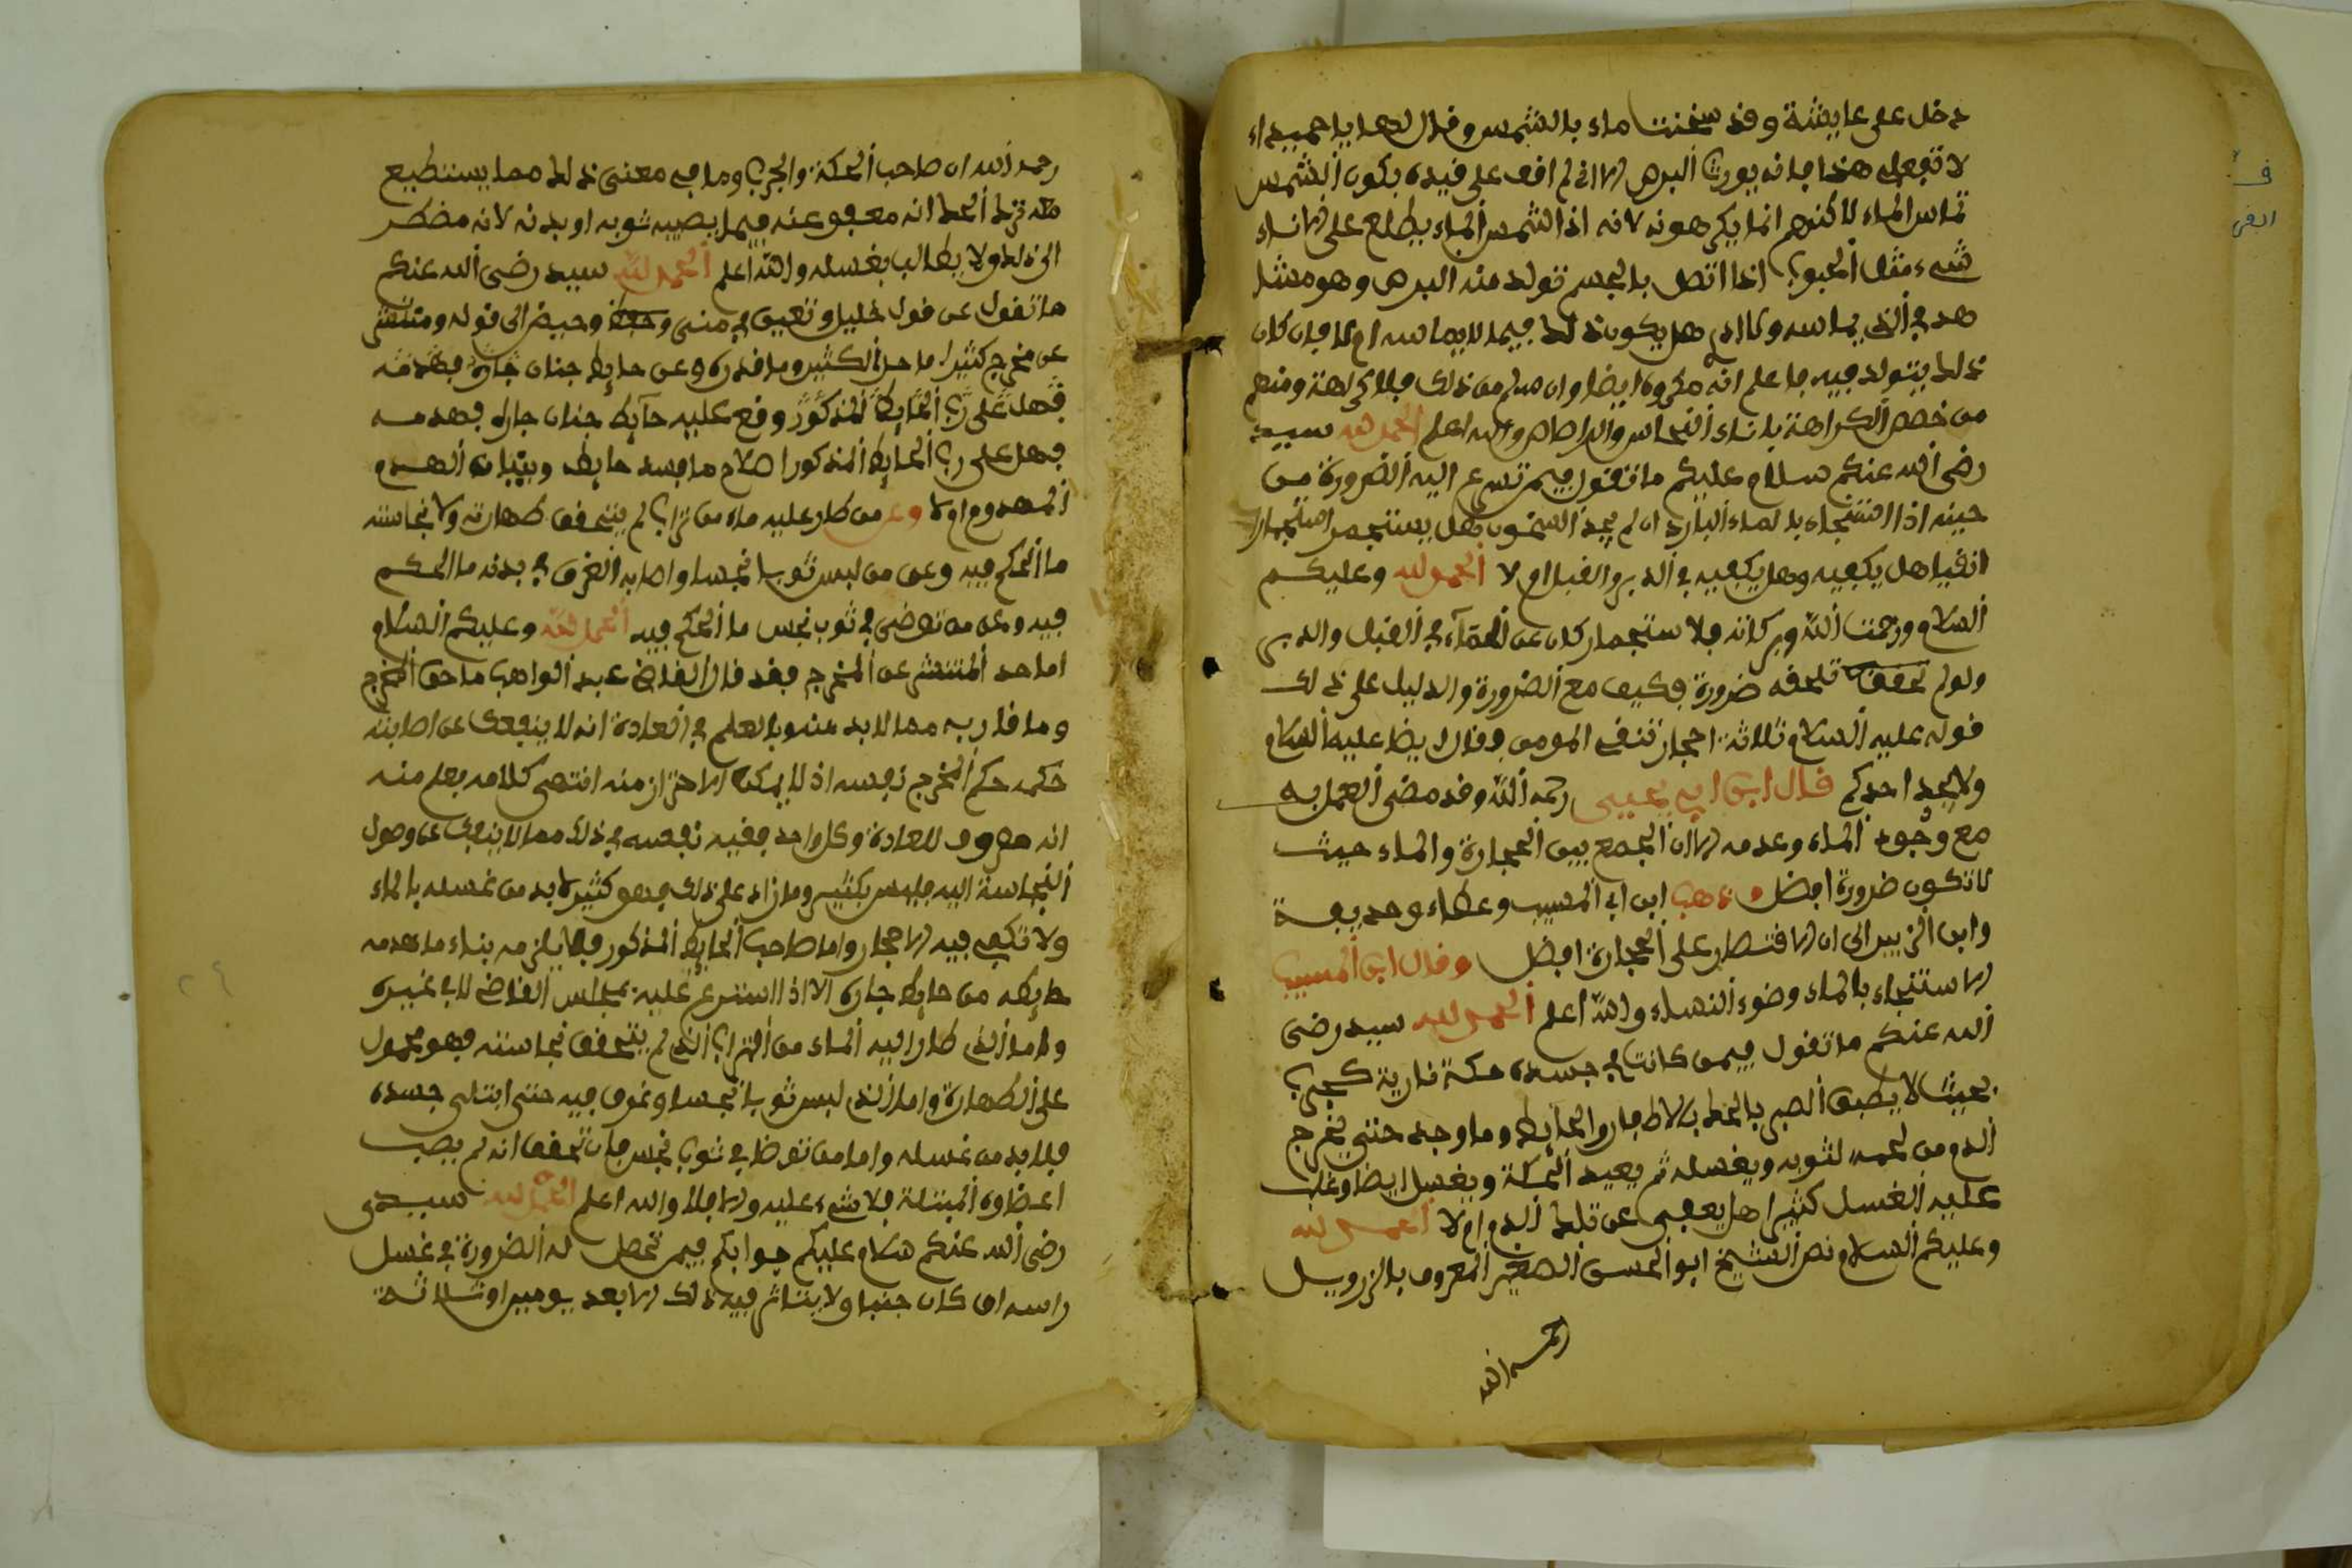 دخل على عايشة وقد سخنت ماء بالشمس وقال لها يا حميراء
لا تفعلي هذا فانه يورث البرص الا اني لم اقف على قيده بكون الشمس
تماس الماء لاكنهم انما يكرهونه لانه اذا الشمس الماء يطلع على الاناء
شيء مثل الحبوب اذا اتصل بالجسم تولد منه البرص وهو مشا
هد في الذي يماسه ولا ادري هل يكون ذلك فيما لا يماسه ام لا فان كان
ذلك يتولد فيه فاعلم انه مكروه ايضا وان سلم من ذلك فلا كراهة ومنهم
من خصص الكراهة باناء النحاس والرصاص والله اعلم الحمد لله سيدي
رضي الله عنكم سلام عليكم ما تقول فيمن تسرع اليه الضرورة من
حينه اذا استنجاء بالماء البارد ان لم يجد السخون هل يستجمر استجمارا
انقيا هل يكفيه وهل يكفيه في الدبر والقبل ام لا الحمد لله وعليكم
السلام ورحمت الله وبركاته فالاستجمار كان عن الماء في القبل والدبر
ولو لم تلحقه ضرورة فكيف مع الضرورة والدليل على ذلك
قوله عليه السلام ثلاثة احجار تنقي المومن وقال ايضا عليه السلام
ولا يجد احدكم قال ابن ابي يحيى رحمه الله وقد مضى العمل به
مع وجود الماء وعدمه الا ان الجمع بين الحجارة والماء حيث
لا تكون ضرورة افضل وذهب ابن ابي المسيب وعطاء وحذيفة
وابن الزبير الى ان الاقتصار على الحجارة افضل وقال ابن المسيب
الاستنجاء بالماء وضوء النساء والله اعلم الحمد لله سيدي رضي
الله عنكم ما تقول فيمن كانت في جسده حكة نارية كجرب
بحيث لا يطيق الصبر بالحك بالاظفار والحايط وما وجد حتى يخرج
الدم من لحمه لثوبه ويغسله ثم يعيد الحكة ويغسل ايضا وغلب
عليه الغسل كثيرا هل يعفى عن تلك الدم ام لا الحمد لله
وعليكم السلام نص الشيخ ابو الحسن الصغير المعروف بالزرويل
رحمه الله
رحمه الله ان صاحب الحكة والجرب وما في معنى ذلك مما يستطيع
معه ترك الحك انه معفو عنه فيما يصيب ثوبه او بدنه لانه مضطر
الى ذلك ولا يطالب بغسله والله اعلم الحمد لله سيدي رضي الله عنكم
ما تقول عن قول خليل وتعين في مني وحيض الى قوله ومنتشر
عن مخرج كثيرا ما حد الكثير وما قدره وعن حايط جنان جاره فهدمه
فهل على رب الحايط المذكور وقع عليه حايط جنان جاره فهدمه
فهل على رب الحايط المذكور اصلاح ما فسد حايطه وبنيان الهدم
المهدوم ام لا وعن من طار عليه ماء من تراب لم يتحقق طهارته ولا نجاسته
ما الحكم فيه وعن من لبس ثوبا نجسا واصابه العرق في بدنه ما الحكم
فيه وعن من توضى في ثوب نجس ما الحكم فيه الحمد لله وعليكم السلام
اما حد المنتشر عن المخرج فقد قال القاضي عبد الواهب ما حق المخرج
وما قاربه مما لا بد منه وبالعلم في العادة انه لا ينفك عن اصابته
حكمه حكم المخرج نفسه اذ لا يمكن الاحتراز منه انتهى كلامه فعلم منه
انه معروف للعادة وكل واحد فقيه نفسه في ذلك مما لا ينفك عن وصول
النجاسة اليه فليس بكثير وما زاد على ذلك فهو كثير لا بد من غسله بالماء
ولا تكفي فيه الاحجار واما صاحب الحايط المذكور فلا يلزمه بناء ما هدمه
حايطه من حايط جاره الا اذا استرعى عليه بمجلس القاضي لا في غيره
واما الذي طار اليه الماء من التراب الذي لم يتحقق نجاسته فهو محمول
على الطهارة واما الذي لبس ثوبا نجسا وعرق فيه حتى ابتلى جسده
فلا بد من غسله واما من توضا في ثوب نجس فان تحقق انه لم يصب
اعضاوه المبتلة فلا شيء عليه والا فلا والله اعلم الحمد لله سيدي
رضي الله عنكم سلام عليكم جوابكم فيمن تحصل له الضرورة في غسل
راسه ان كان جنبا ولا يتاثر فيه ذلك الا بعد يومين او ثلاثة